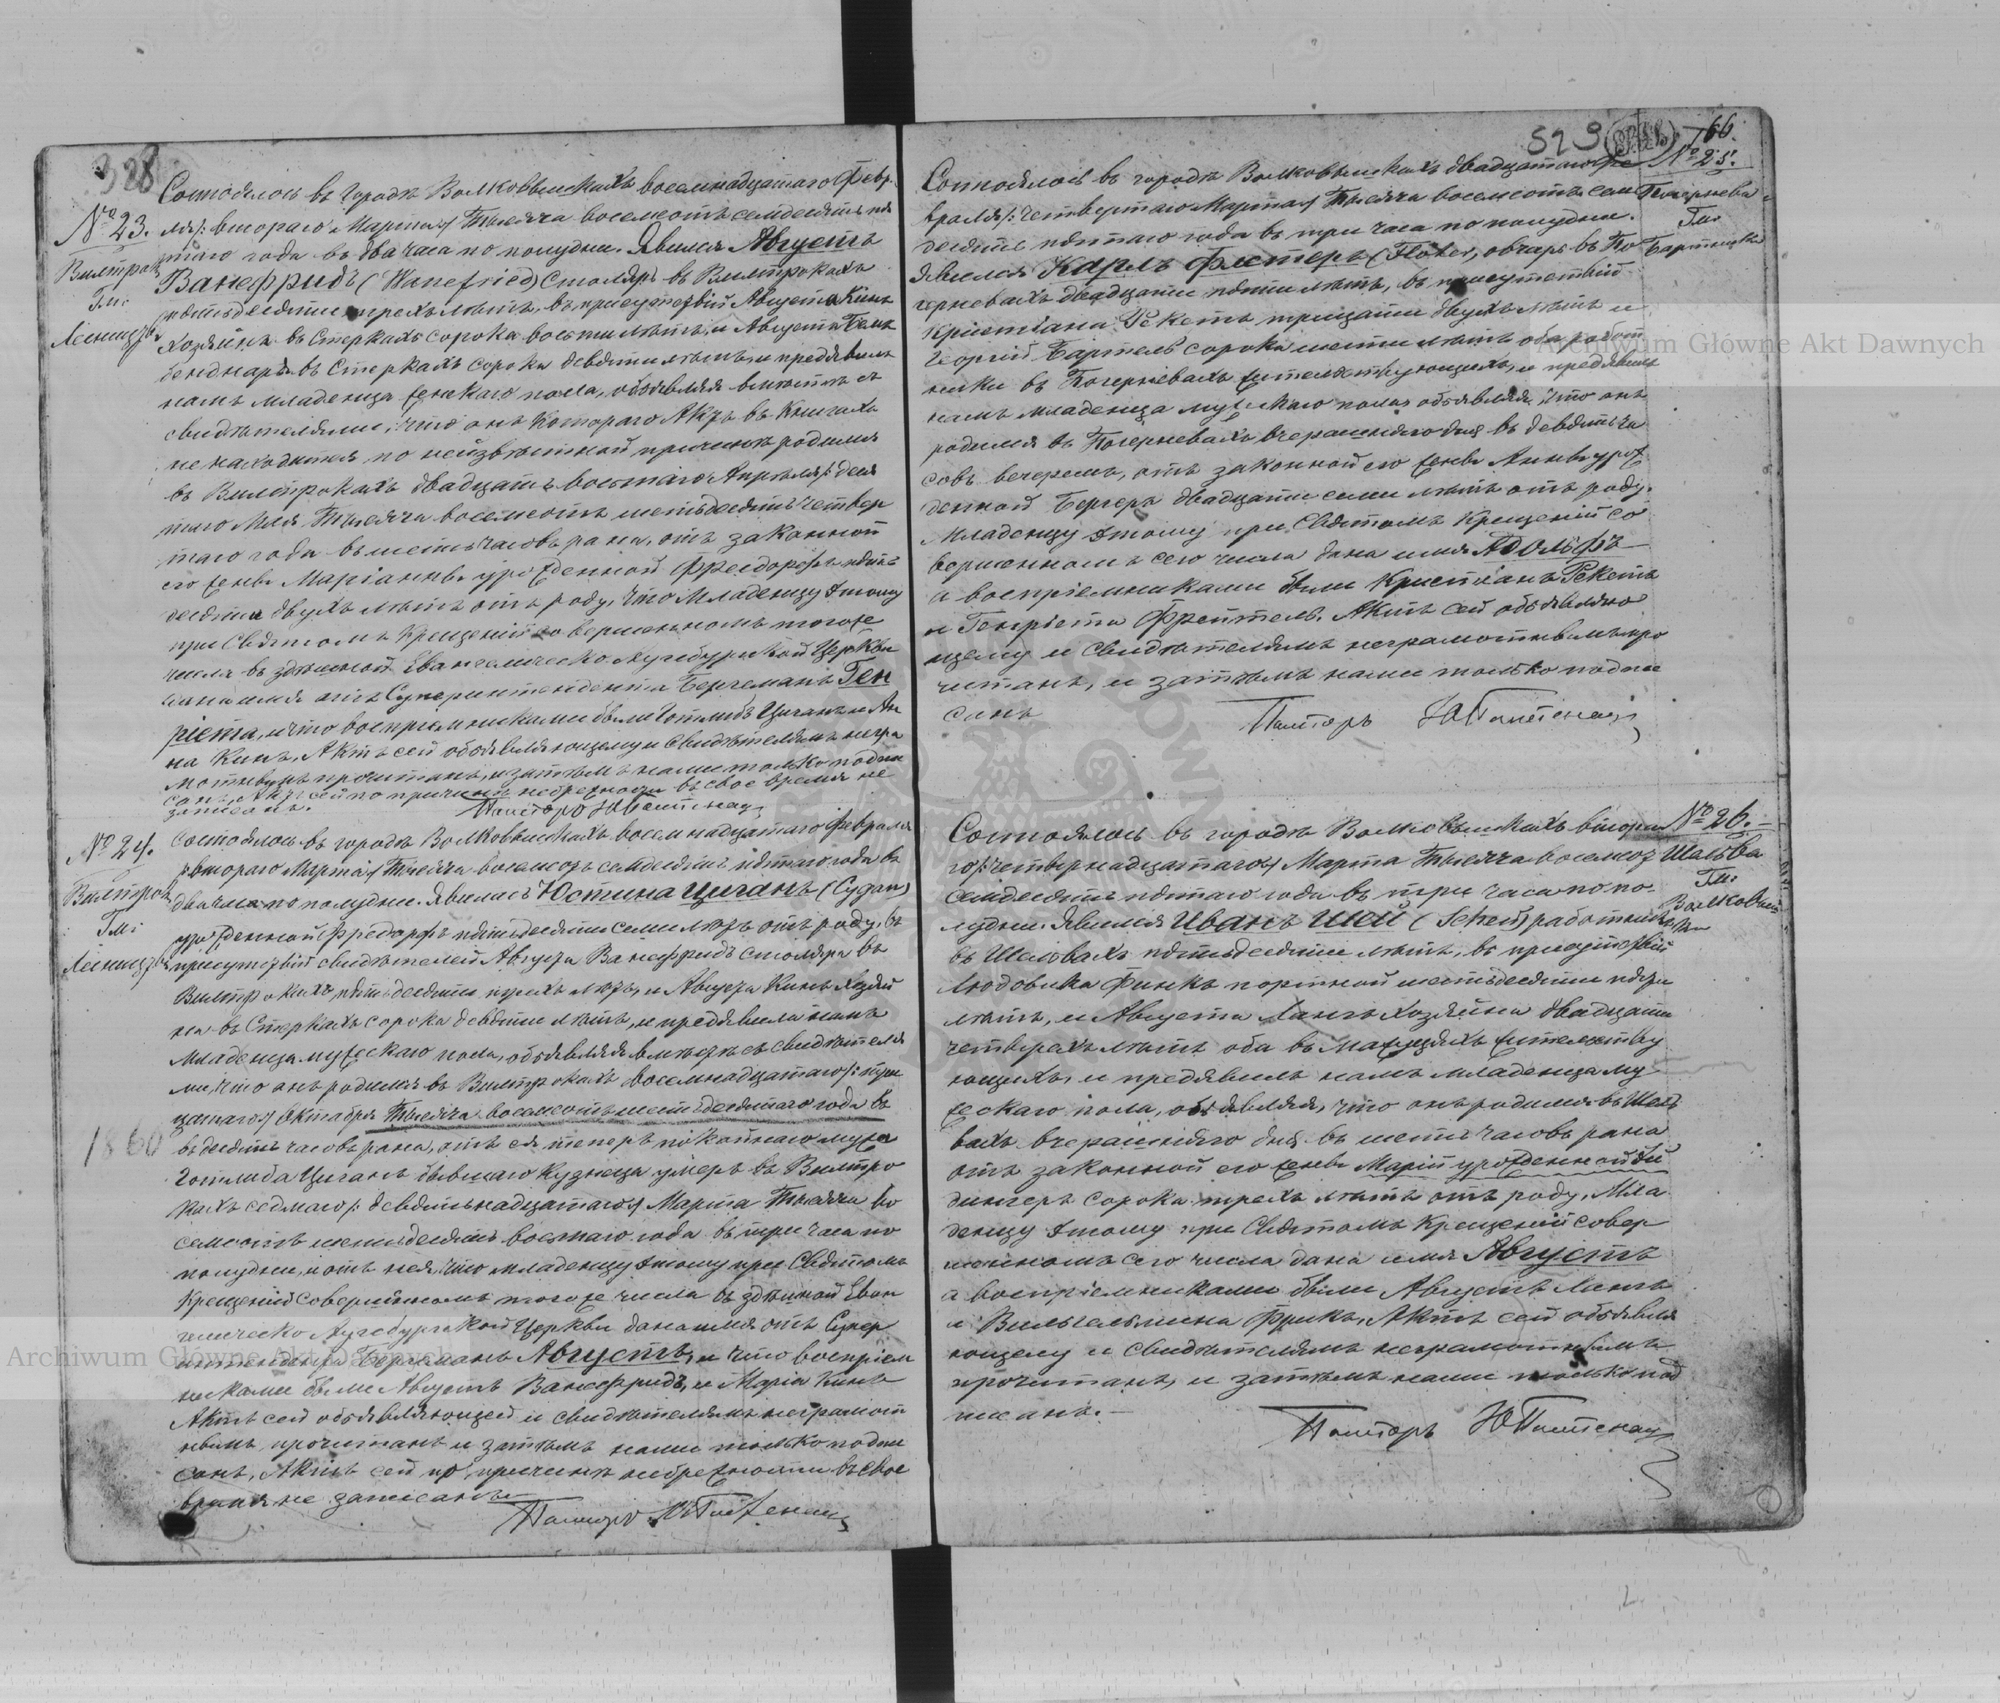 328
№ 23.
Вилтрок
Гм:
Состоялось въ городѣ Волковышкахъ восемнадцатаго Фев
раля /: втораго Марта :/ тысяча восемсотъ семдесятъ пя
таго года въ два часа по полудни. Явился Августъ
Ванефридъ (Wanefried) столяръ въ Вилтрокахъ
пятьдесяти трехъ лѣтъ, въ присутствіи Августа Кинъ
хозяина въ Стеркахъ сорока восьми лѣтъ, и Августа
въ Стеркахъ сорока девяти лѣтъ, и предъявилъ
намъ младенца женскаго пола, объявляя вмѣстѣ съ
свидѣтелями, что онъ котораго Актъ въ книгахъ
не находится по неизвѣстной причинѣ родился
въ Вилтрокахъ двадцать восьмаго Апрѣля /: деся
таго Мая :/ тысяча восемсотъ шестьдесятъ четвер
таго года въ шесть часовъ рана, отъ законной
его жены Маріанны урожденной Фрейдорфъ пять
десяти двухъ лѣтъ отъ роду, что младенцу этому
при Святомъ Крещеніи совершенномъ того же
числа въ здѣшной Евангелическо Аугсбургской Церкви
дана имя отъ Суперинтендента Бергеманъ Ген
ріета, и что воспріемниками были Готлибъ Циганъ и Ан
на Кинъ, Актъ сей объявляющему и свидѣтелямъ негра
мотнымъ прочитанъ, и затѣмъ нами только подпи
санъ, Актъ сей по причинѣ небрежности въ свое время не
записанъ.
Пасторъ
№ 24.
Вилтрок
Гм:
Состоялось въ городѣ Волковышкахъ восемнадцатаго Февраля
/: втораго Марта :/ тысяча восемсотъ семдесятъ пятаго года въ
два часа по полудни. Явилась Юстина Циганъ (Cygan)
урожденной Фрейдорфъ пятьдесяти семи лѣтъ отъ роду, въ
присутствіи свидѣтелей Августа Ванефридъ столяра въ
Вилтрокахъ пятьдесяти трехъ лѣтъ, и Августа Кинъ хозяи
на въ Стеркахъ сорока девяти лѣтъ, и предъявила намъ
младенца мужескаго пола, объявляя вмѣстѣ съ свидѣтеля
ми, что онъ родился въ Вилтрокахъ восемнадцатаго /: трид
цатаго :/ Октября тысяча восемсотъ шестьдесятаго года въ
1860
въ десять часовъ рана, отъ ея теперь покойнаго мужа
Готлиба Циганъ бывшаго кузнеца умеръ въ Вилтро
кахъ седмаго /: девятьнадцатаго :/ Марта тысяча во
семсотъ шестьдесятъ восьмаго года въ три часа по
полудни, и отъ нея, что младенцу этому при Святомъ
Крещеніи совершенномъ того же числа въ здѣшной Еван
гелическо Аугсбургской Церкви дана имя отъ Супер
интендента Бергеманъ Августъ, и что воспріем
никами были Августъ Ванефридъ, и Марія Кинъ
Актъ сей объявляющей и свидѣтелямъ неграмот
нымъ, прочитанъ и затѣмъ нами только подпи
санъ, Актъ сей по причинѣ небрежности въ свое
время не записанъ.
Пасторъ
529 166.
№ 25.
Гм:
Состоялось въ городѣ Волковышкахъ двадцатаго Фе
враля /: четвертаго Марта :/ тысяча восемсотъ сем
десятъ пятаго года въ три часа по полудни.
Явился Карлъ Флетеръ (Flöter) овчаръ въ По
герневахъ двадцати пяти лѣтъ, въ присутствіи
Кристіана Рекетъ тридцати двухъ лѣтъ и
Георгій Бартель сорока шести лѣтъ оба работ
ники въ Погерневахъ жительствующихъ, и предъявилъ
намъ младенца мужескаго пола объявляя, что онъ
родился въ Погерневахъ вчерашняго дня въ девять ча
совъ вечеромъ, отъ законной его жены Анны урож
денной Бергеръ двадцати семи лѣтъ отъ роду.
Младенцу этому при Святомъ Крещеніи со
вершенномъ сего числа дана имя Адольфъ
а воспріемниками были Кристіанъ Рекетъ
и Генріета Фрейтель. Актъ сей объявляю
щему и свидѣтелямъ неграмотнымъ про
читанъ, и затѣмъ нами только подпи
санъ
Пасторъ
№ 26.
Гм:
Состоялось въ городѣ Волковышкахъ втора
го /: четырнадцатаго :/ Марта тысяча восемсотъ
семдесятъ пятаго года въ три часа по по
лудни. Явился Иванъ Шей (Schei) работникъ
въ Шельвахъ пятьдесяти лѣтъ, въ присутствіи
Людовика Финкъ портной шестьдесяти пяти
лѣтъ, и Августа Лангъ хозяина двадцати
четырехъ лѣтъ оба въ жительству
ющихъ, и предъявилъ намъ младенца му
жескаго пола, объявляя, что онъ родился въ Шель
вахъ вчерашняго дня въ шесть часовъ рана
отъ законной его жены Маріи урожденной
дингеръ сорока трехъ лѣтъ отъ роду, Мла
денцу этому при Святомъ Крещеніи совер
шенномъ сего числа дана имя Августъ
а воспріемниками были Августъ Лангъ
и Вильгельмина Финкъ, Актъ сей объявля
ющему и свидѣтелямъ неграмотнымъ
прочитанъ, и затѣмъ нами только под
писанъ.
Пасторъ
Archiwum Główne Akt Dawnych
Archiwum Główne Akt Dawnych